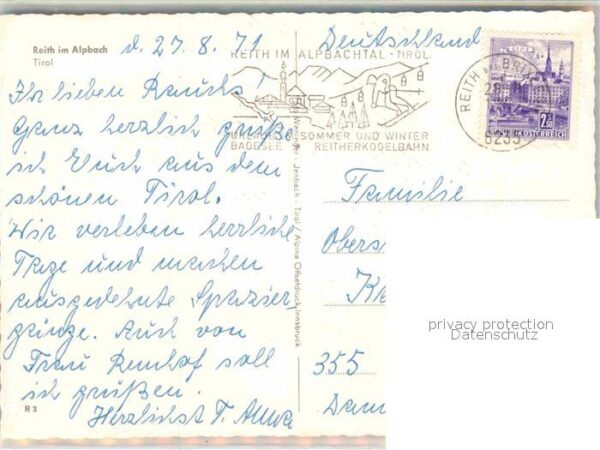 Reith im Alpbach
Tirol
d. 27.8.71
Deutschland
REITH IM ALPBACHTAL - TIROL
SOMMER UND WINTER
BADESEE REITHERKOGELBAHN
REITH
6235
REPUBLIK ÖSTERREICH
Ihr lieben
Ganz herzlich grüße
ich Euch aus dem
schönen Tirol.
Wir verleben herrliche
Tage und machen
ausgedehnte Spazier-
gänge. Auch von
Frau soll
ich grüßen.
Herzlichst T.
R 3
Jenbach - Tirol / Alpina Offsetdruck, Innsbruck
Familie
Obers
355
privacy protection
Datenschutz